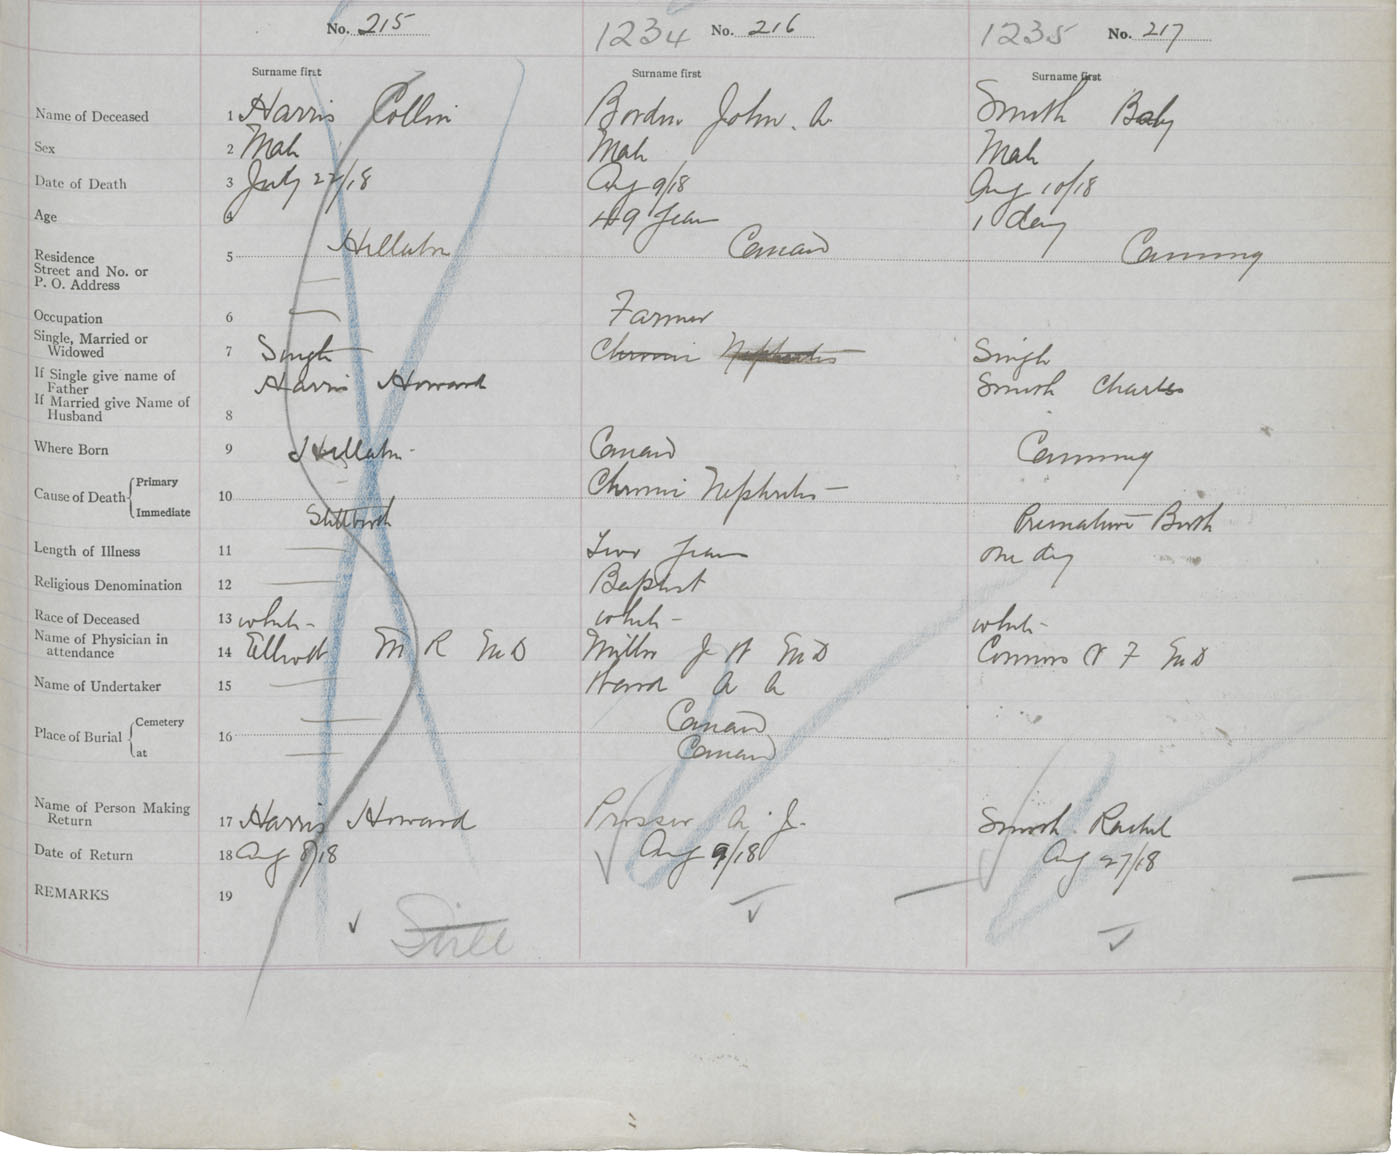 No. 215
1234 No. 216
1235 No. 217
Surname first Surname first Surname first
Name of Deceased 1 Harris Collin Borden John. A. Smith Baby
Sex 2 Male Male Male
Date of Death 3 July 22/18 Aug 9/18 Aug 10/18
Age 4 49 Years 1 day
Residence Street and No. or P. O. Address 5 Hillaton Canard Canning
Occupation 6 — Farmer
Single, Married or Widowed 7 Single Chronic Nephritis Single
If Single give name of Father Harris Howard Smith Charles
If Married give Name of Husband 8
Where Born 9 Hillaton Canard Canning
Cause of Death Primary 10 Chronic Nephritis —
Immediate Stillbirth Premature Birth
Length of Illness 11 — Two Years one day
Religious Denomination 12 — Baptist
Race of Deceased 13 white - white - white -
Name of Physician in attendance 14 Elliott M R M D Miller J W M D Connors F M D
Name of Undertaker 15 — A A
Place of Burial Cemetery 16 — Canard
at — Canard
Name of Person Making Return 17 Harris Howard Prosser A. J. Smith Rachel
Date of Return 18 Aug 8/18 Aug 9/18 Aug 27/18
REMARKS 19
Still